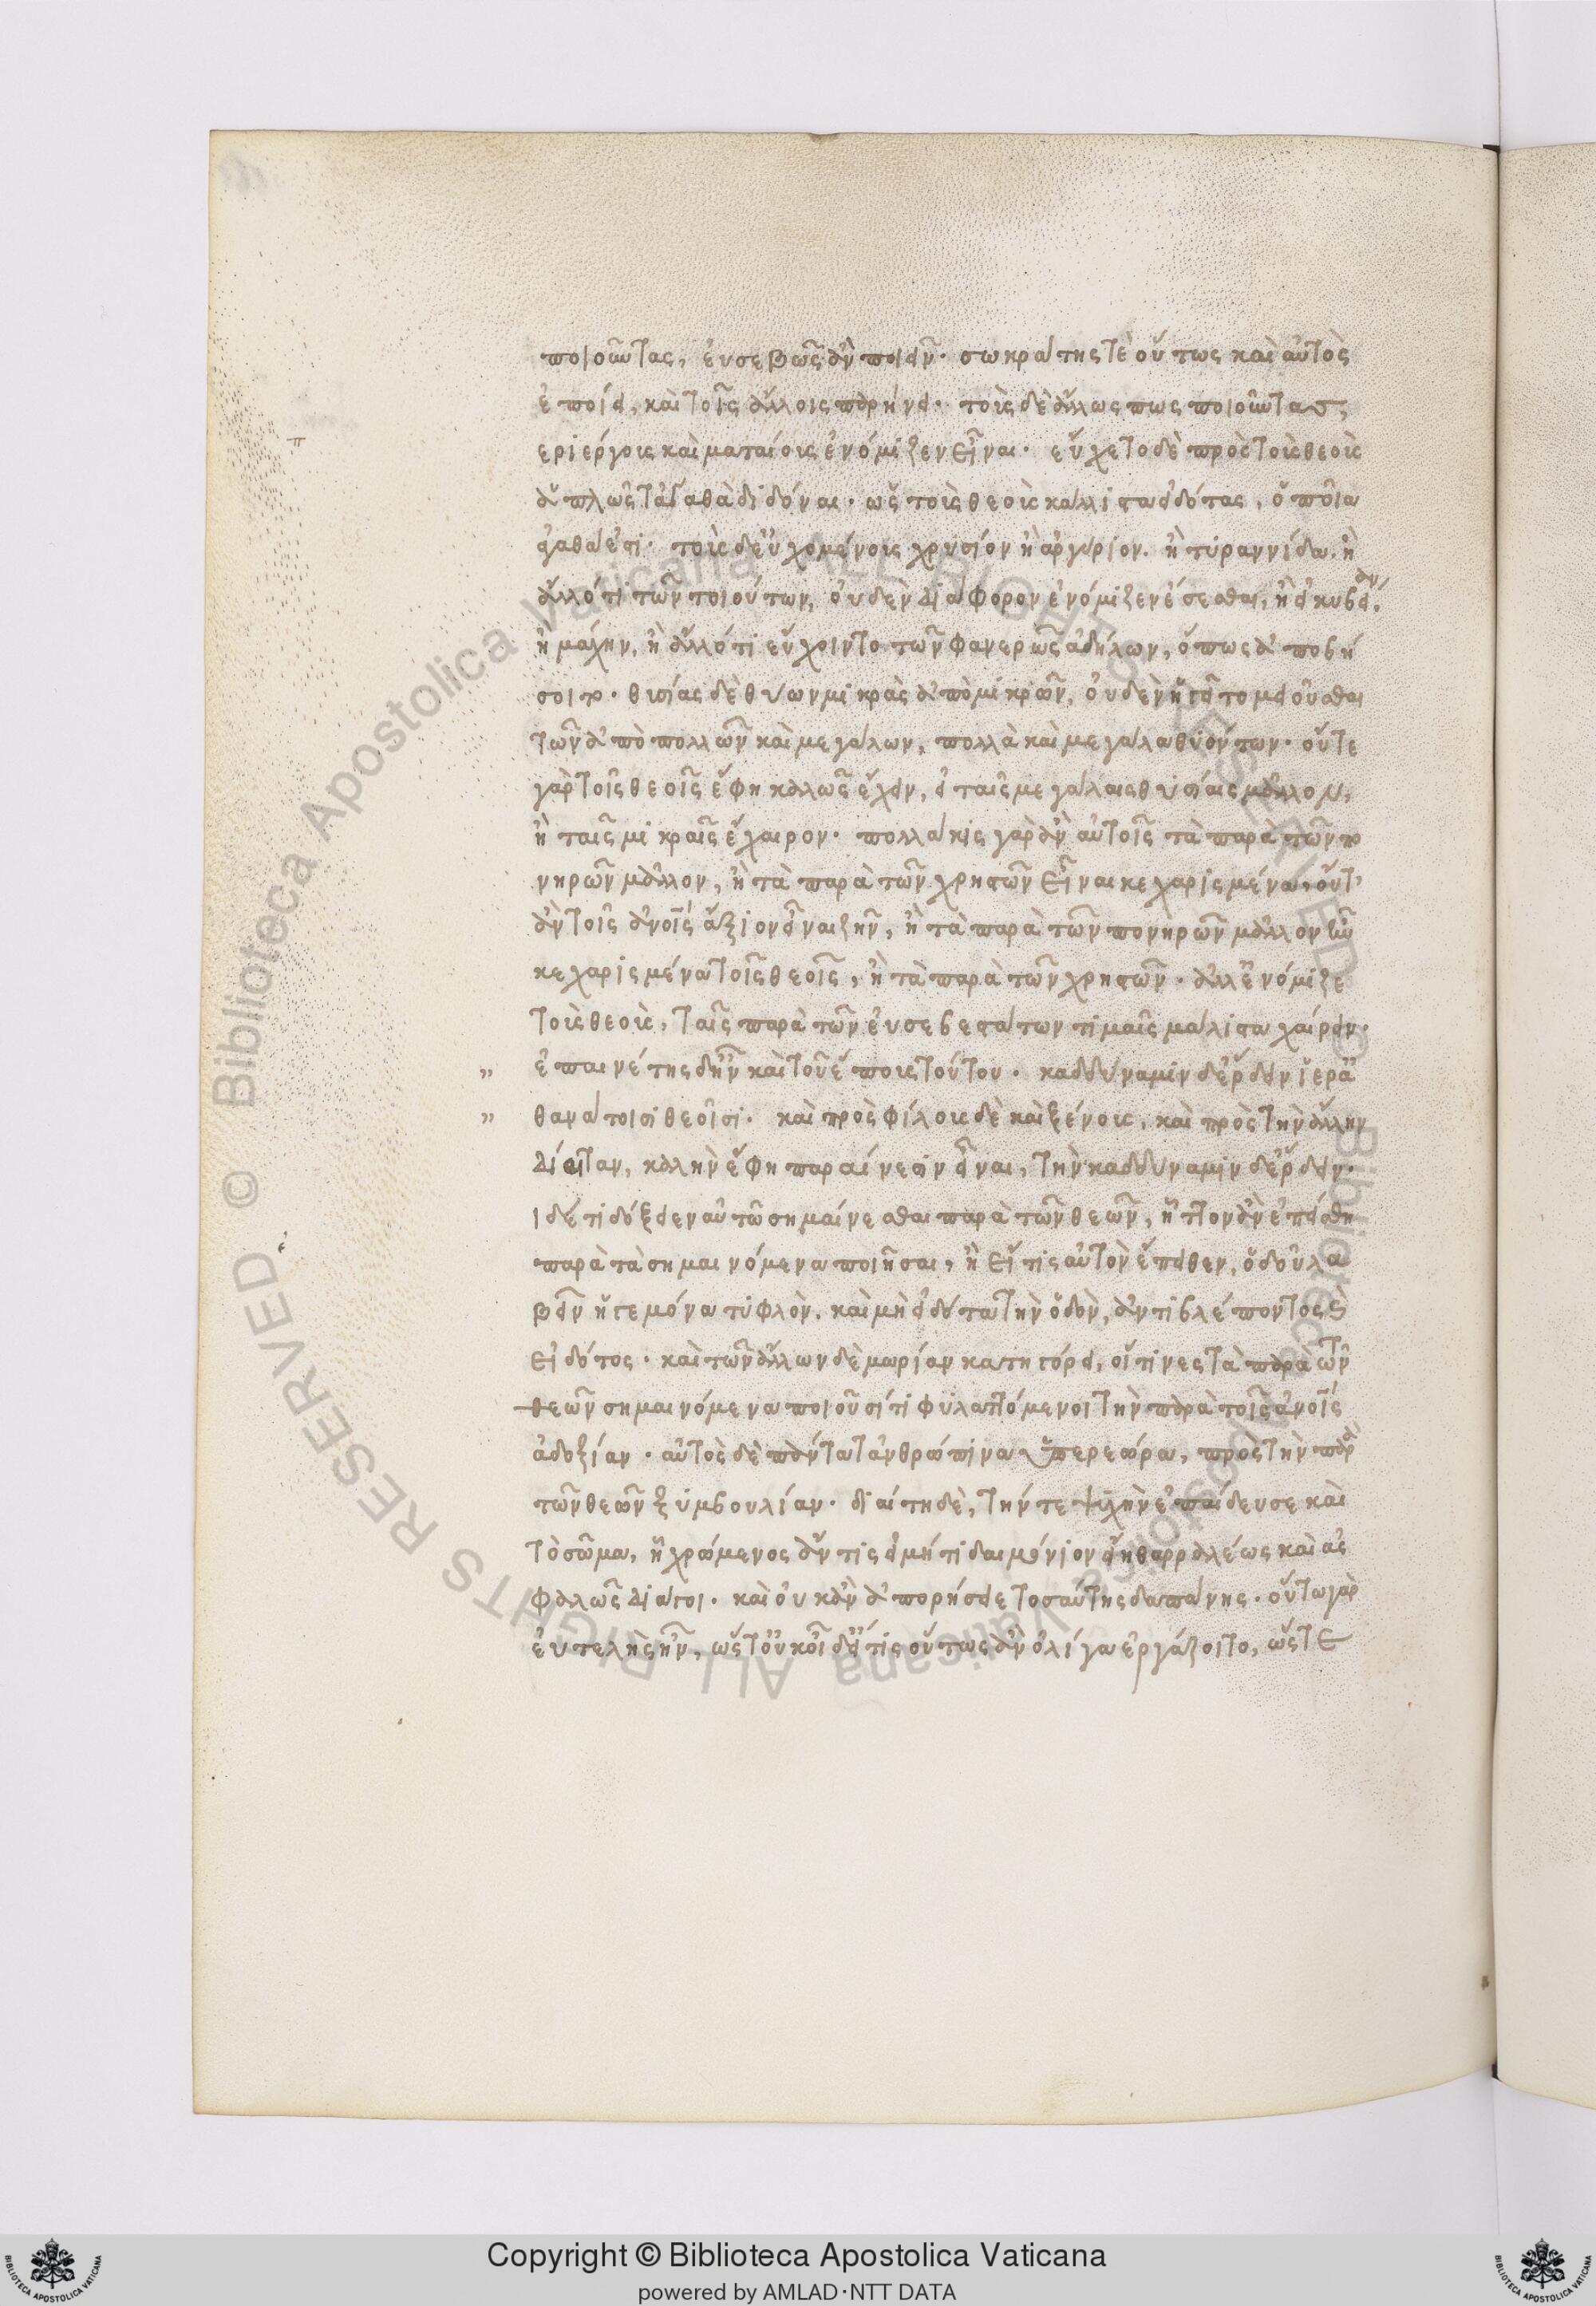 ποιοῦντας, εὐσεβῶς ἂν ποιεῖν. σωκράτης τὲ οὕτως καὶ αὐτὸς
ἐποίει, καὶ τοῖς ἄλλοις παρήνει. τοὺς δὲ ἄλλως πως ποιοῦντας
π
εριέργους καὶ ματαίους ἐνόμιζεν εἶναι. εὔχετο δὲ πρὸς τοὺς θεοὺς
ἁπλῶς τἀγαθὰ διδόναι. ὡς τοὺς θεοὺς κάλλιστα εἰδότας, ὁποῖα
ἀγαθά ἐστι. τοὺς δ' εὐχομένους χρυσίον ἢ ἀργύριον. ἢ τυραννίδα. ἢ
ἄλλό τι τῶν τοιούτων, οὐδὲν διάφορον ἐνόμιζεν εὔξεσθαι, ἢ εἰ κυβείαν,
ἢ μάχην, ἢ ἄλλό τι εὔχοιντο τῶν φανερῶς ἀδήλων, ὅπως ἀποβή
σοιτο. θυσίας δὲ θύων μικρὰς ἀπὸ μικρῶν, οὐδὲν ἡγεῖτο μειοῦσθαι
τῶν ἀπὸ πολλῶν καὶ μεγάλων, πολλὰ καὶ μεγάλα θυόντων. οὔτε
γὰρ τοῖς θεοῖς ἔφη καλῶς ἔχειν, εἰ ταῖς μεγάλαις θυσίαις μᾶλλον,
ἢ ταῖς μικραῖς ἔχαιρον. πολλάκις γὰρ ἂν αὐτοῖς τὰ παρὰ τῶν πο
νηρῶν μᾶλλον, ἢ τὰ παρὰ τῶν χρηστῶν εἶναι κεχαρισμένα, οὔτ'
ἂν τοῖς ἀνοις ἄξιον εἶναι ζῆν, ἢ τὰ παρὰ τῶν πονηρῶν μᾶλλον ἦν
κεχαρισμένα τοῖς θεοῖς, ἢ τὰ παρὰ τῶν χρηστῶν. ἀλλ' ἐνόμιζε
τοὺς θεοὺς, ταῖς παρὰ τῶν εὐσεβεστάτων τιμαῖς μάλιστα χαίρειν.
" ἐπαινέτης δ' ἦν καὶ τοῦ ἔπους τούτου. καδδύναμιν δ' ἔρδειν ἱερὰ
" θανάτοισι θεοῖσι. καὶ πρὸς φίλους δὲ καὶ ξένους, καὶ πρὸς τὴν ἄλλην
δίαιταν, καλὴν ἔφη παραίνεσιν εἶναι, τὴν καδδύναμιν δ' ἔρδειν.
ι δέ τι δόξειεν αὐτῶ σημαίνεσθαι παρὰ τῶν θεῶν, ἧττον ἂν ἐπείσθη
παρὰ τὰ σημαινόμενα ποιῆσαι, ἢ εἴ τις αὐτὸν ἔπειθεν, ὁδοῦ λα
βεῖν ἡγεμόνα τυφλὸν. καὶ μὴ εἰδότα τὴν ὁδὸν, ἀντὶ βλέποντος καὶ
εἰδότος. καὶ τῶν ἄλλων δὲ μωρίαν κατηγόρει, οἵτινες τὰ παρὰ τῶν
θεῶν σημαινόμενα ποιοῦσί τι φυλαττόμενοι τὴν παρὰ τοῖς ἀνοις
ἀδοξίαν. αὐτὸς δὲ πάντα τἀνθρώπινα ὑπερεώρα, πρὸς τὴν παρὰ
τῶν θεῶν ξυμβουλίαν. διαίτη δὲ, τήν τε ψυχὴν ἐπαίδευσε καὶ
τὸ σῶμα, ἧ χρώμενος ἄν τις εἰ μή τι δαιμόνιον εἴη θαρραλέως καὶ ἀσ
φαλῶς διάγοι. καὶ οὐκ ἂν ἀπορήσειε τοσαύτης δαπάνης. οὕτω γὰρ
εὐτελὴς ἦν, ὥστ' οὐκ οἶδ' εἴ τις οὕτως ἂν ὀλίγα ἐργάζοιτο, ὥστε
Copyright © Biblioteca Apostolica Vaticana
powered by AMLAD·NTT DATA